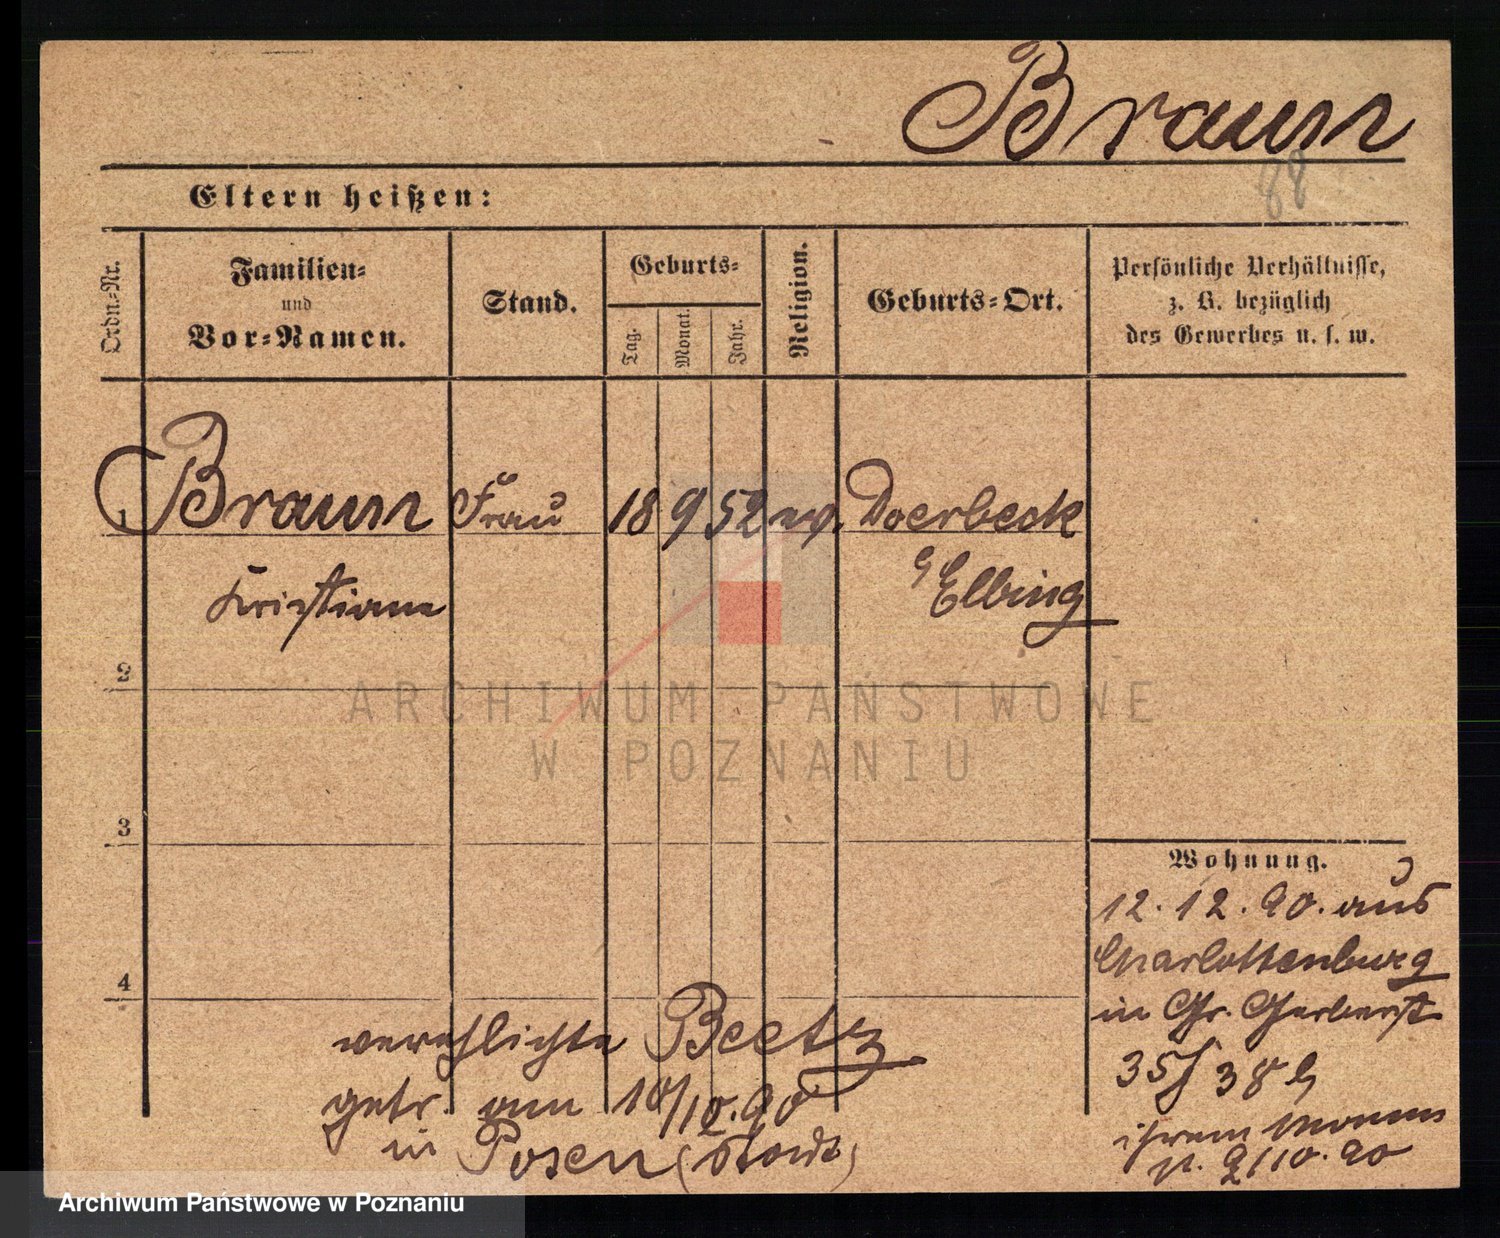 Braun
88
Eltern heißen:
Ordn.-Nr.
Familien-
und
Vor-Namen.
Stand.
Geburts-
Tag.
Monat.
Jahr.
Religion.
Geburts-Ort.
Persönliche Verhältnisse,
z. B. bezüglich
des Gewerbes u. s. w.
1 Braun Frau 18 9 52 ev. Doerbeck
Kristiane Elbing
2
ARCHIWUM PAŃSTWOWE
W POZNANIU
3
Wohnung.
12.12.90. aus
Charlottenburg
4
in Gr. Gerberst
verehlichte Beetz
35/38 b
getr. am 10/12.90
ihrem
in Posen (Stadt)
10.90
Archiwum Państwowe w Poznaniu